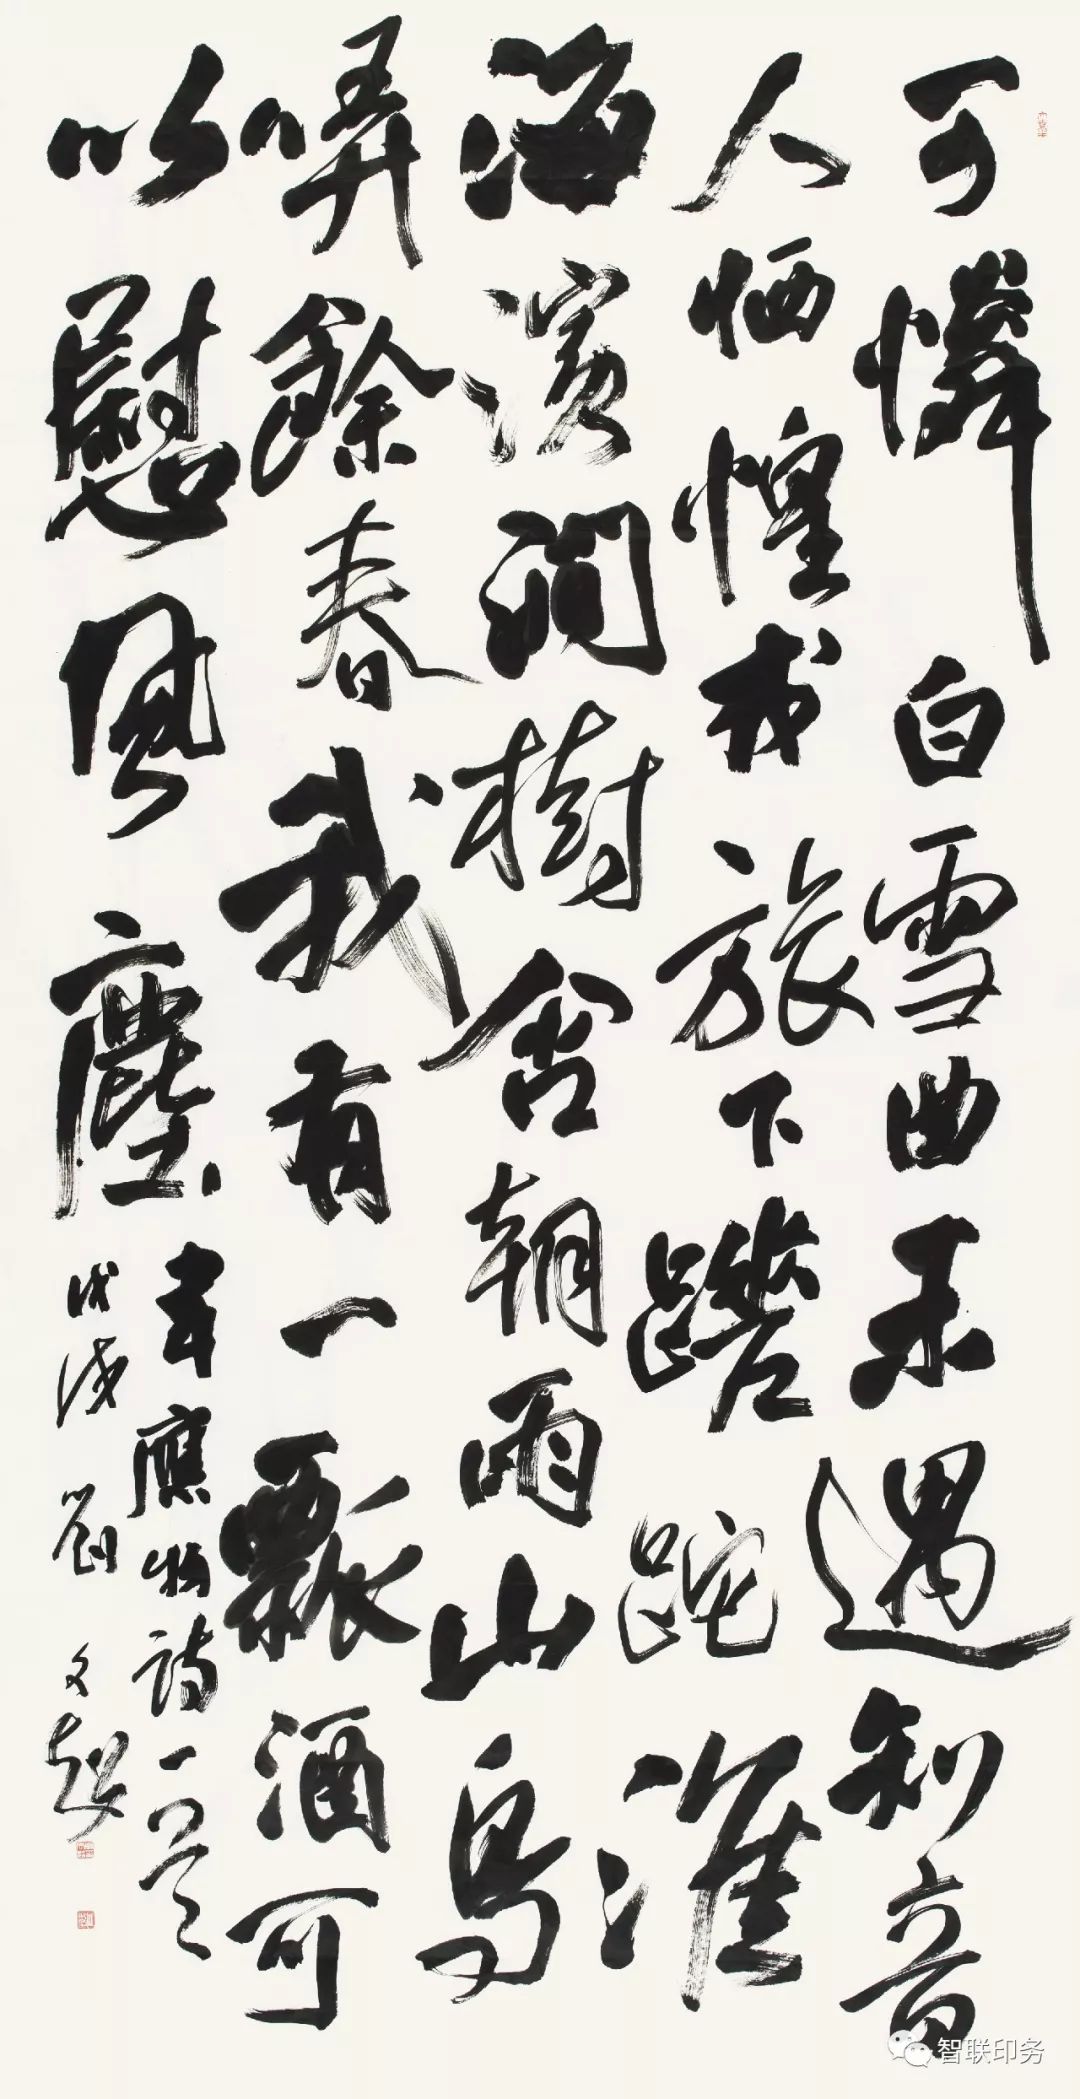 可憐白雪曲未遇知音
人恓惶戎旅下蹉跎淮
海濱澗樹含朝雨山鳥
哢餘春我有一瓢酒可
以慰風塵
韋應物詩一首
戊戌劉文
智联印务